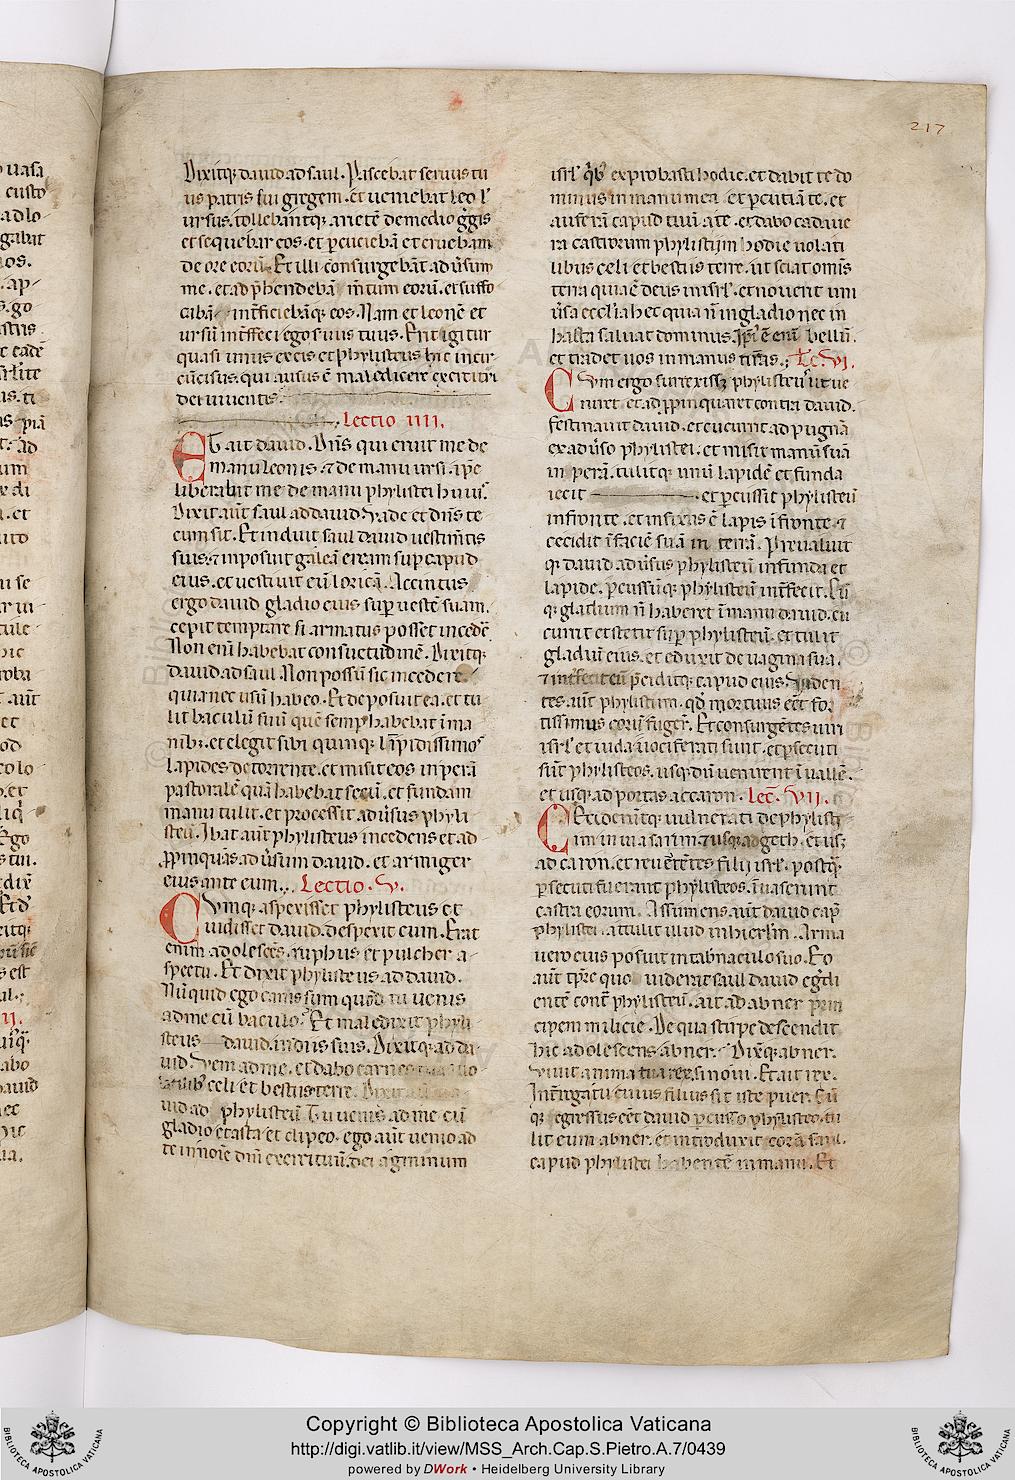 217
Dixitq; dauid ad saul. Pascebat seruus tu
us patris sui gregem. et ueniebat leo l'
ursus. tollebantq; arietē de medio g̃gis
et sequebar eos. et p̃cuciebā et eruebam
de ore eorū. Et illi consurgebāt aduſum
me. et adp̃hendebā mentum eorū. et suffo
cabā int̃ficiebāq; eos. Nam et leonē et
ursū int̃feci ego suus tuus. Erit igitur
quasi unus ex eis et phylisteus hic incir
cūcisus. qui ausus ē maledicere exercitui
dei uiuentis.
Lectio IIII.
Et ait dauid. Dñs qui eruit me de
manu leonis. ⁊ de manu ursi. ip̃e
liberabit me de manu phylistei huiꝰ.
Dixit aūt saul ad dauid. Vade et dñs te
cum sit. Et induit saul dauid uestim̃tis
suis. ⁊ inposuit galeā eream sup̱ capud
eius. et uestiuit eū loricā. Accintus
ergo dauid gladio eius sup̱ uestē suam.
cepit temptare si armatus posset incedē.
Non enī habebat consuetudinē. Dixitq;
dauid ad saul. Non possū sic incedere.
quia nec usū habeo. Et deposuit ea. et tu
lit baculū suū quē semp̱ habebat ī ma
nibꝫ. et elegit sibi quinq; līpidissimoˢ
lapides de torrente. et misit eos in perā
pastoralē quā habebat secū. et fundam
manu tulit. et processit aduſsus phyli
steū. Ibat aūt phylisteus incedens et ad
ꝓpinquās aduſsum dauid. et armiger
eius ante eum.. Lectio. V.
Cumq; aspexisset phylisteus et
uidisset dauid. despexit eum. Erat
enim adolescēs. ruphus et pulcher a-
spectu. Et dixit phylisteus ad dauid.
Nūquid ego canis sum quod tu uenis
ad me cū baculo? Et maledixit phyli
steus dauid. in diis suis. Dixitq; ad da
uid. Veni ad me. et dabo carnes tuas uo
latilibꝰ celi et bestiis terre. Dixit
uid ad phylisteū. Tu uenis ad me cū
gladio et asta et clipeo. ego aūt uenio ad
te in noīe dñi exercituū. dei agminum
isrl' q̇bꝰ exprobasti hodie. et dabit te do
minus in manu mea. et p̱cutiā te. et
auferā capud tuū a te. et dabo cadaue
ra castrorum phylistijm hodie uolati
libus celi et bestiis terre. ut sciat omīs
terra quia ē deus in isrl'. et nouerit uni
ũsa eccl'ia hec quia nī in gladio nec in
hasta saluat dominus. Ip̃iꝰ ē enī bellū.
et tradet uos in manus nr̃as.; Lc. VI.
Cum ergo surrexissꝫ phylisteuˢ ut ue
niret. et adꝓpinquaret contra dauid.
festinauit dauid. et cucurrit ad pugnā
ex aduſso phylistei. et misit manū suā
in perā. tulitq; unū lapidē et funda
iecit. et p̱cussit phylisteū
in fronte. et infixus ē lapis ī fronte. ⁊
cecidit ī faciē suā in terrā. Preualuit
q; dauid aduſsus phylisteū in funda et
lapide. p̱cussūq; phylisteū int̃fecit. Cū
q; gladium nō haberet ī manu dauid. cu
currit et stetit sup̱ phylisteū. et tulit
gladiū eius. et eduxit de uagina sua.
⁊ int̃fecit eū p̃ciditq; capud eius. Viden
tes. aūt phylistiim. qd̓ mortuus eēt for
tissimus eorū fuger̃. Et consurgētes uiri
isrl' et iuda uociferati sunt. et p̱secuti
sūt phylisteos. usq; dū uenirent ī uallē.
et usq; ad portas accaron. Lec̃. VII.
Cecideruntq; uulnerati de phylisti
im in uia sarim. ⁊ usq; ad geth. et usꝫ
ad caron. et reu̓tentes filij isrl'. postq̃.
p̱secuti fuerant phylisteos. īuaserunt
castra eorum. Assumens aūt dauid cap̱
phylistei. attulit illud in hierl'm. Arma
uero eius posuit in tab̃naculo suo. Eo
aūt tp̃re quo uiderat saul dauid eg̃di
entē cont̃ phylisteū. ait ad abner prin
cipem milicie. De qua stirpe descendit
hic adolescens abner. Dix̃q; abner.
Viuit anima tua rex. si noui. Et ait rex.
Int̃rogatu cuius filius sit iste puer. Cū
q; egressus eēt dauid p̱cusso phylisteo. tu
lit eum abner. et introduxit corā saul.
capud phylistei habentē in manu. Et
Copyright © Biblioteca Apostolica Vaticana
http://digi.vatlib.it/view/MSS_Arch.Cap.S.Pietro.A.7/0439
powered by DWork • Heidelberg University Library
BIBLIOTECA APOSTOLICA VATICANA
BIBLIOTECA APOSTOLICA VATICANA